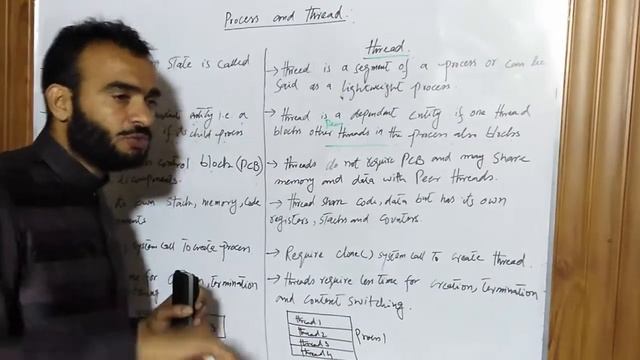 Process and Thread :
State is called
entity i.e. a
child process
control block (PCB)
its own stack, memory, code
system call To create process
termination
thread.
→ thread is a segment of a process or can be
said as a lightweight process.
→ thread is a dependent Entity if one thread
blocks other Peer threads in the process also blocks
→ Threads do not require PCB and may share
memory and data with Peer threads.
→ thread share code, data but has its own
registers, stacks and Counters.
→ Require clone(,) system call To create thread.
→ threads require less time for creation, termination
and context switching.
thread 1
thread 2
thread 3
thread 4
Process 1